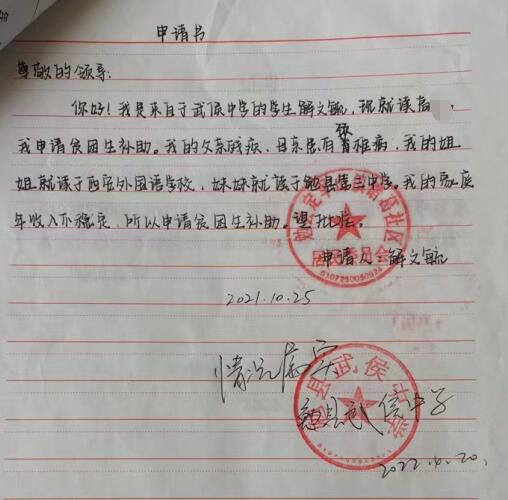 申请书
尊敬的领导:
你好!我是来自于武侯中学的学生解文毓,现就读高
我申请贫困生补助。我的父亲残疾,母亲患有疑难病,我的姐
姐就读于西安外国语学校,妹妹就读于勉县第三中学。我的家庭
年收入不稳定,所以申请贫困生补助。望批准。
申请人:解文毓
2021.10.25
社区
居民委员会
6107250050924
情况属实
勉县武侯中学
勉县武侯中学
2022.10.20.